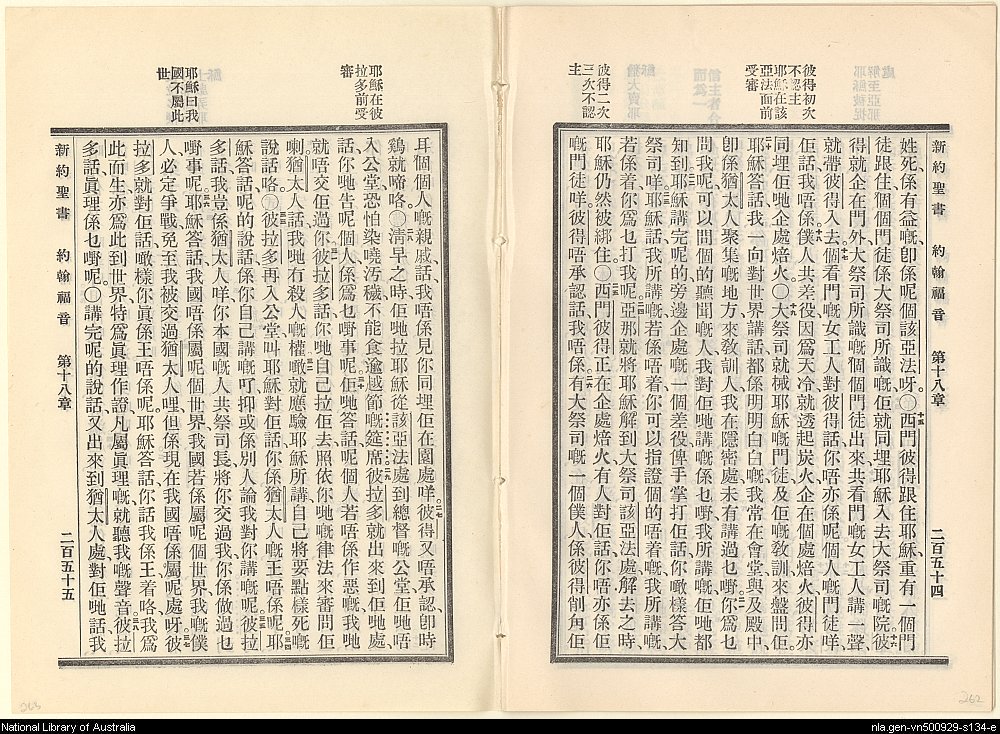 彼得初次
不認主
耶穌在該
亞法面前
受審
彼得二次
三次不認
主
新約聖書 約翰福音 第十八章 二百五十四
姓死、係有益嘅、卽係呢個該亞法呀。〇十五西門彼得跟住耶穌、重有一個門
徒跟住、個個門徒係大祭司所識嘅、佢就同埋耶穌入去大祭司嘅院、十六彼
得就企在門外、大祭司所識嘅個個門徒出來、共看門嘅女工人講一聲、
就帶彼得入去、十七個看門嘅女工人對彼得話、你唔亦係呢個人嘅門徒咩、
佢話、我唔係。十八僕人共差役、因爲天冷、就透起炭火、企在個處焙火、彼得亦
同埋佢哋企處焙火。〇十九大祭司就械耶穌嘅門徒、及佢嘅敎訓來盤問佢。
二十耶穌答話、我一向對世界講話、都係明明白白嘅、我常在會堂與及殿中、
卽係猶太人聚集嘅地方來敎訓人、我在隱密處未有講過乜嘢、二一你爲乜
問我呢、可以問個的聽聞嘅人、我對佢哋講嘅係乜嘢、我所講嘅、佢哋都
知到。二二耶穌講完呢的、旁邊企處嘅一個差役、俾手掌打佢話、你噉樣答大
祭司咩。二三耶穌話、我所講嘅、若係唔着、你可以指證個的唔着嘅、我所講嘅、
若係着、你爲乜打我呢。二四亞那就將耶穌解到大祭司該亞法處、解去之時、
耶穌仍然被綁住。〇二五西門彼得正在企處焙火、有人對佢話、你唔亦係佢
嘅門徒咩、彼得唔承認、話、我唔係。二六有大祭司嘅一個僕人、係彼得削甪
耶穌在彼
拉多前受
審
耶穌曰我
國不屬此
世
耳個個人嘅親戚、話、我唔係見你同埋佢在園處咩。二七彼得又唔承認、卽時
鷄就啼咯。〇二八淸早之時、佢哋拉耶穌從該亞法處、到總督嘅公堂、佢哋唔
入公堂、恐怕染嘵汚穢、不能食逾越節嘅筵席、二九彼拉多就出來到佢哋處、
話、你哋告呢個人係爲乜嘢事呢。三十佢哋答話、呢個人若唔係作惡嘅、我哋
就唔交佢過你。三一彼拉多話、你哋自己拉佢去、照依你哋嘅律法來審問佢
喇、猶太人話、我哋冇殺人嘅權、三二噉就應驗耶穌所講自己將要點樣死嘅
說話咯。〇三三彼拉多再入公堂、叫耶穌對佢話、你係猶太人嘅王唔係呢。三四耶
穌答話、呢的說話、係你自己講嘅吖、抑或係別人論我對你講嘅呢。三五彼拉
多話、我豈係猶太人咩、你本國嘅人、共祭司長、將你交過我、你係做過乜
嘢事呢。三六耶穌答話、我國唔係屬呢個世界、我國若係屬呢個世界、我嘅僕
人必定爭戰、免至我被交過猶太人哩、但係現在我國唔係屬呢處呀。三七彼
拉多就對佢話、噉樣你眞係王唔係呢、耶穌答話、你話我係王着咯、我爲
此而生、亦爲此到世界、特爲眞理作證、凡屬眞理嘅、就聽我嘅聲音。三八彼拉
多話、眞理係乜嘢呢。〇講完呢的說話、又出來到猶太人處、對佢哋話、我
新約聖書 約翰福音 第十八章 二百五十五
262
263
National Library of Australia
nla.gen-vn500929-s134-e